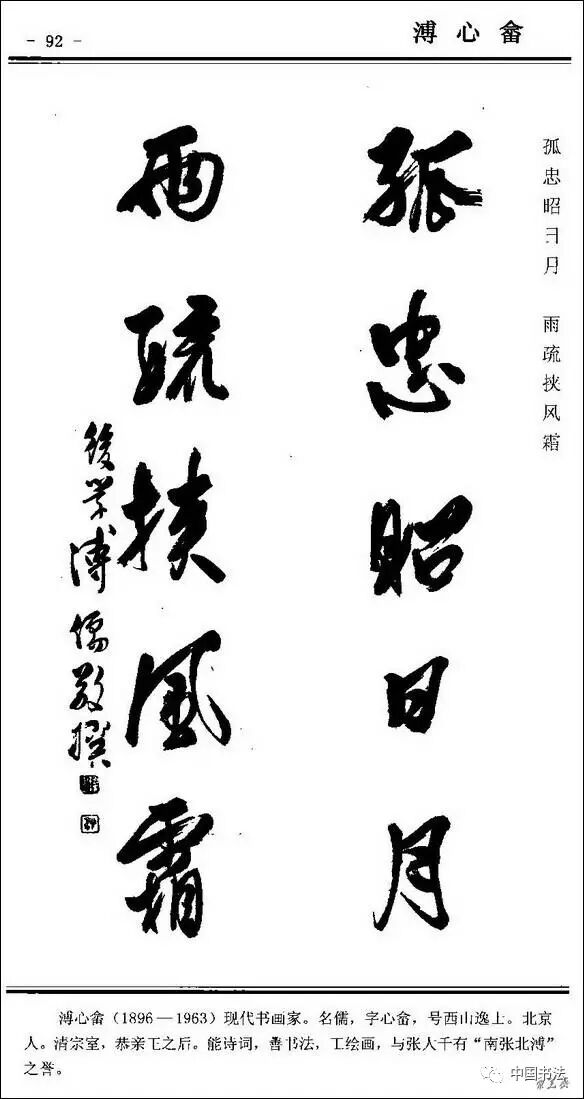 - 92 -
溥心畬
孤忠昭日月 雨疏挟风霜
孤忠昭日月
兩疏挾風霜
後學溥儒敬撰
溥心畬(1896—1963)现代书画家。名儒，字心畬，号西山逸士。北京
人。清宗室，恭亲王之后。能诗词，善书法，工绘画，与张大千有“南张北溥”
之誉。
中国书法